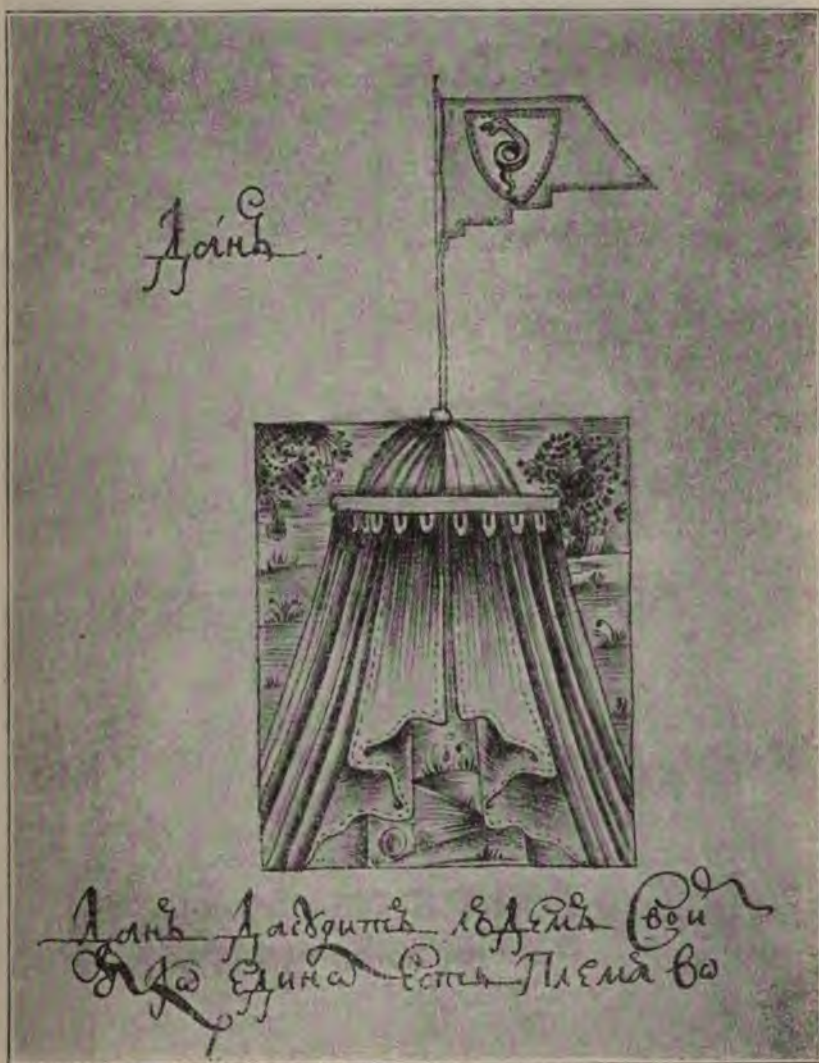 Да́нъ.
Данъ Дасꙋдитъ людемъ Свои
Ꙗкѡ единѡ Естъ Племѧ вѡ